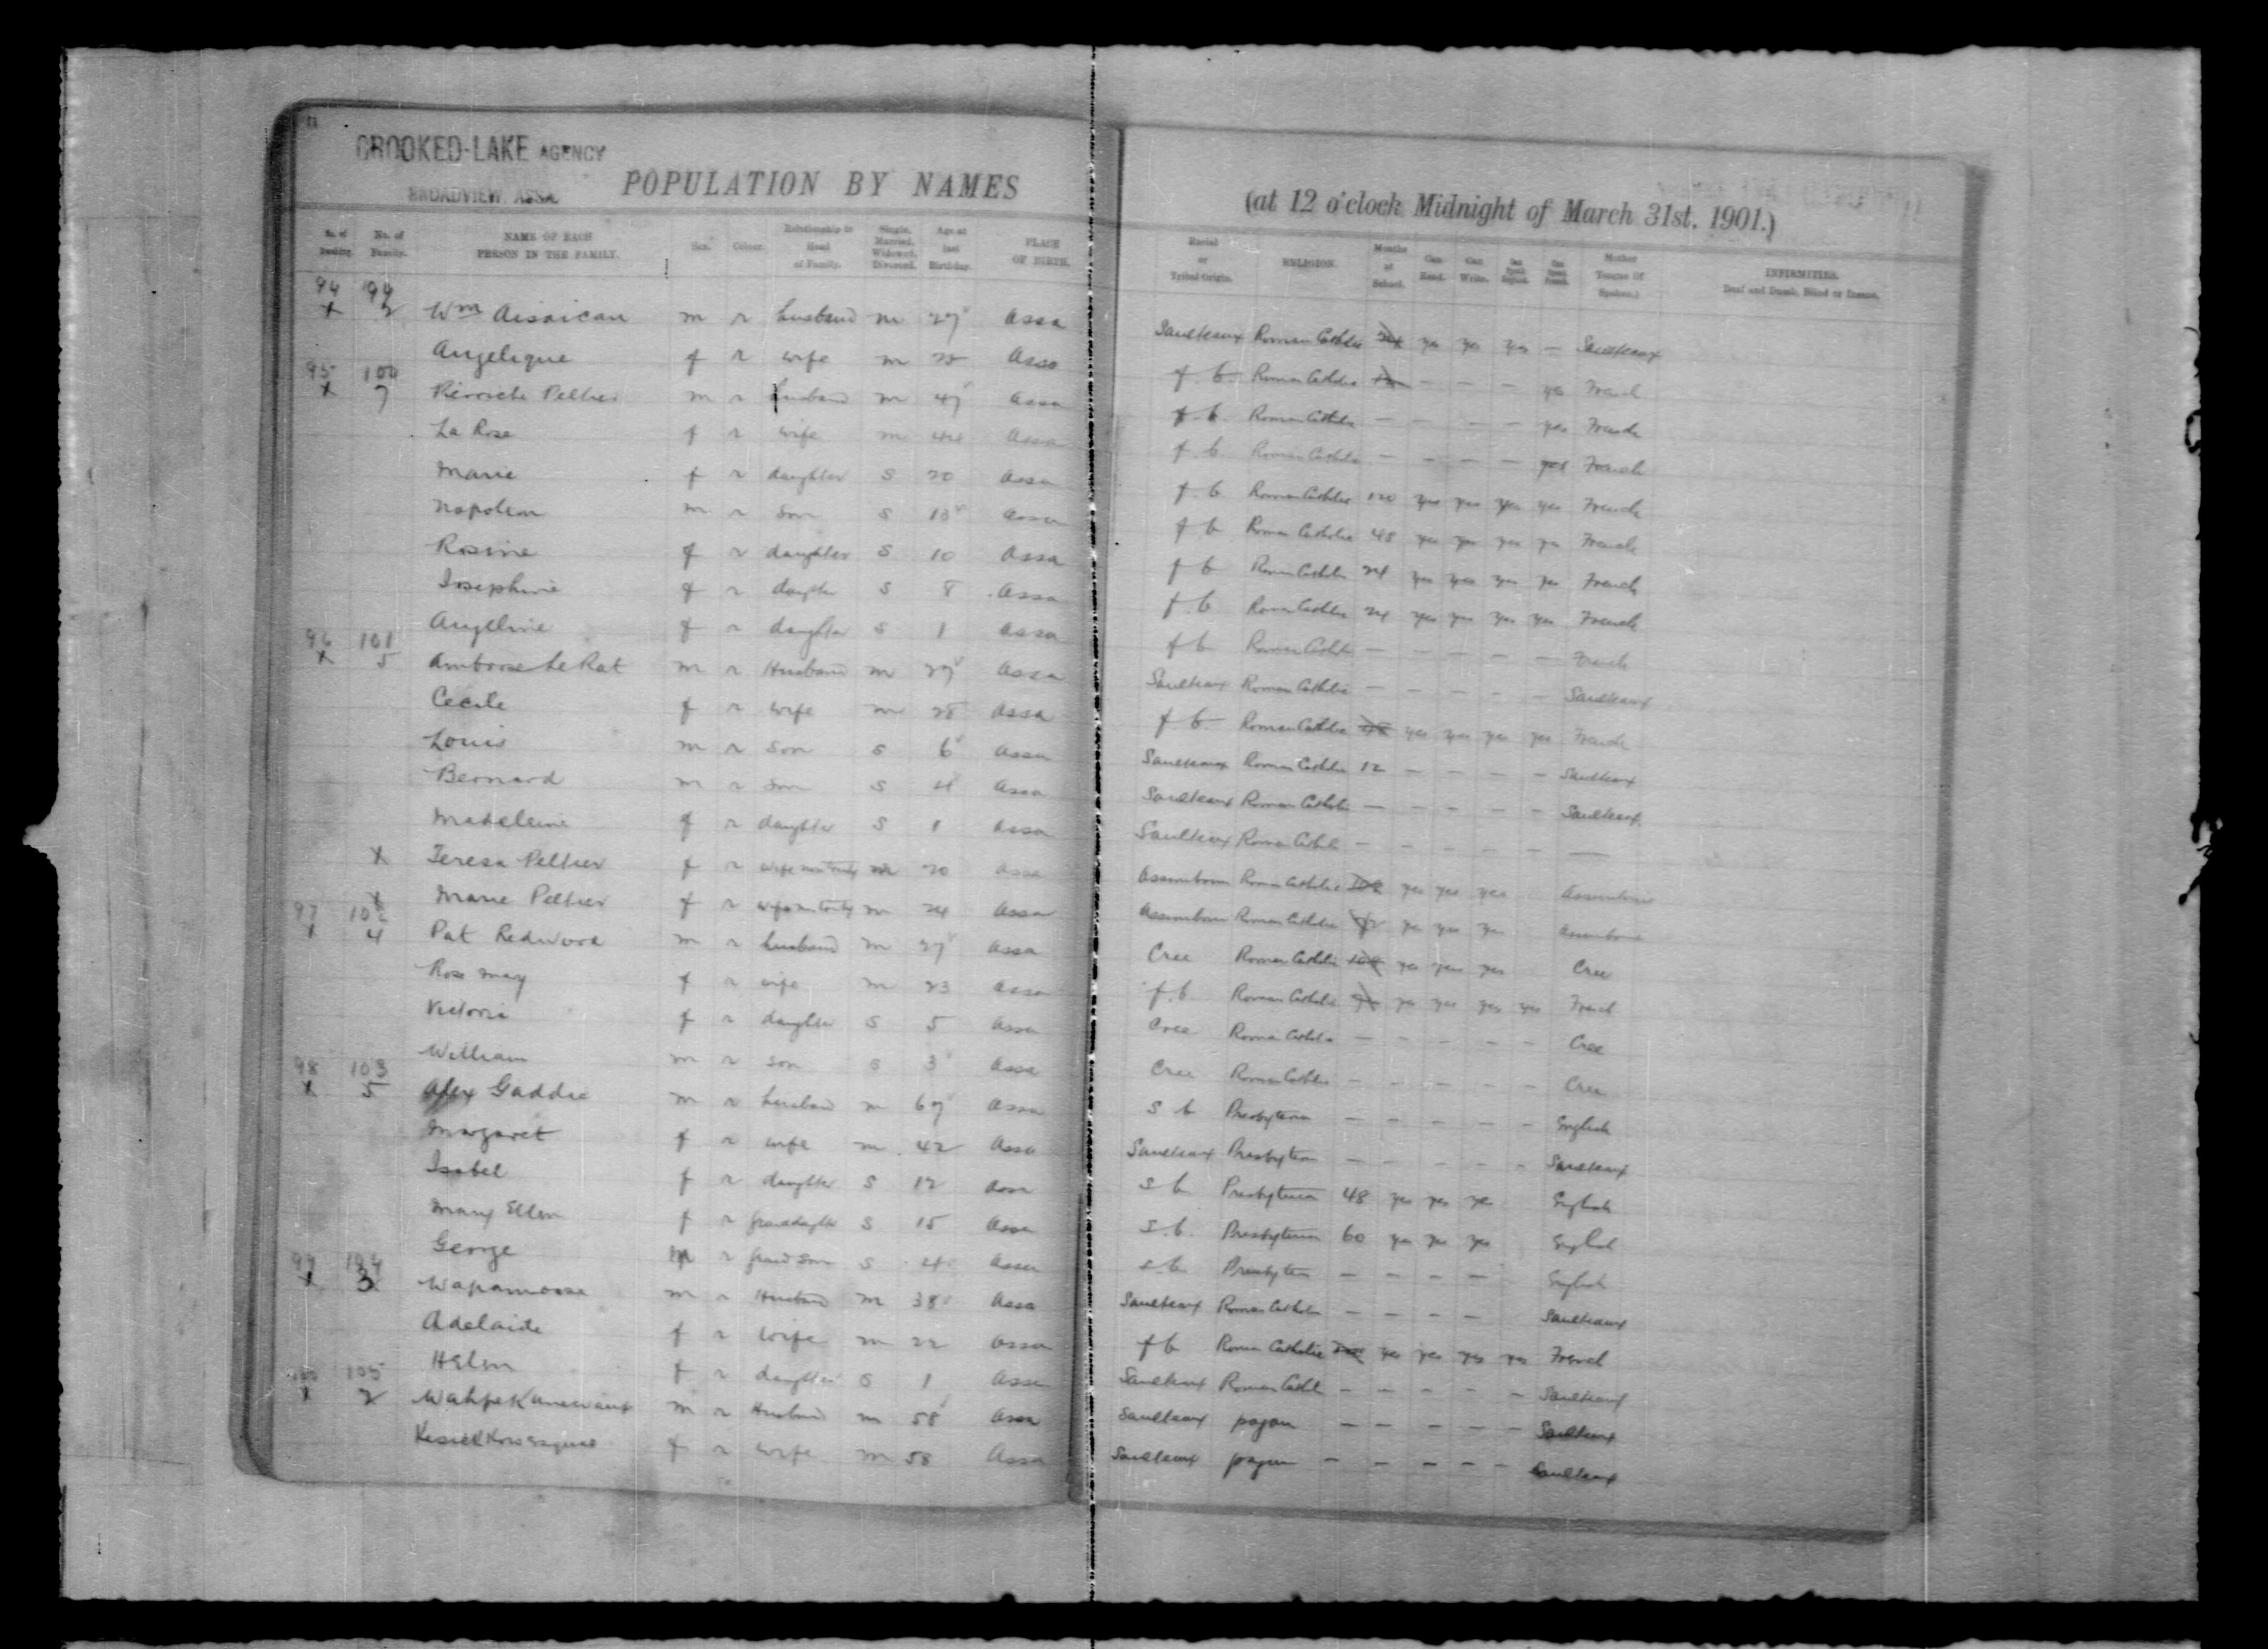 11
CROOKED-LAKE AGENCY
BROADVIEW, ASSA.
POPULATION BY NAMES
(at 12 o'clock Midnight of March 31st, 1901.)
No. of Dwelling. No. of Family. NAME OF EACH PERSON IN THE FAMILY. Sex. Colour. Relationship to Head of Family. Single, Married, Widowed, Divorced. Age at last Birthday. PLACE OF BIRTH. Racial or Tribal Origin. RELIGION. Months at School. Can Read. Can Write. Can Speak English. Can Speak French. Mother Tongue (if Spoken.) INFIRMITIES. Deaf and Dumb, Blind or Insane.
94 99
x 2 Wm Aisaican m r husband m 27 Assa Saulteaux Roman Catholic yes yes yes — Saulteaux
Angelique f r wife m Assa f. b. Roman Catholic — — — yes French
95 100
x 7 Pierriche Peltier m r husband m 47 Assa f. b. Roman Catholic — — — — yes French
La Rose f r wife m 44 Assa f b Roman Catholic — — — — yes French
Marie f r daughter s 20 Assa f. b Roman Catholic 120 yes yes yes yes French
Napoleon m r son s 13 Assa f b Roman Catholic 48 yes yes yes yes French
Rosine f r daughter s 10 Assa f b Roman Catholic 24 yes yes yes yes French
Josephine f r daughter s 8 Assa f. b Roman Catholic 24 yes yes yes yes French
Angeline f r daughter s 1 Assa f b Roman Catholic — — — — — French
96 101
x 5 Ambrose Le Rat m r Husband m 29 Assa Saulteaux Roman Catholic — — — — — Saulteaux
Cecile f r wife m 28 Assa f b Roman Catholic yes yes yes yes French
Louis m r son s 6 Assa Saulteaux Roman Catholic 12 — — — — Saulteaux
Bernard m r son s 4 Assa Saulteaux Roman Catholic — — — — — Saulteaux
Madeleine f r daughter s 1 Assa Saulteaux Roman Cathol — — — — — —
x Teresa Peltier f r m 20 Assa Roman Catholic yes yes yes
x Marie Peltier f r m 24 Assa Roman Catholic yes yes yes
97 102
x 4 Pat Redwood m r husband m 27 Assa Cree Roman Catholic yes yes yes Cree
Rose Mary f r wife m 23 Assa f. b. Roman Catholic yes yes yes yes French
Victoria f r daughter s 5 Assa Cree Roman Catholic — — — — — Cree
William m r son s 3 Assa Cree Roman Catholic — — — — — Cree
98 103
x 5 Alex Gaddie m r husband m 67 Assa s b Presbyterian — — — — — English
Margaret f r wife m 42 Assa Saulteaux Presbyterian — — — — Saulteaux
Isabel f r daughter s 12 Assa s b Presbyterian 48 yes yes yes English
Mary Ellen f r granddaughter s 15 Assa s. b. Presbyterian 60 yes yes yes English
George m r grand son s 4 Assa s b Presbyterian — — — — English
99 104
x 3 Wapamoose m r Husband m 38 Assa Saulteaux Roman Catholic — — — — Saulteaux
Adelaide f r wife m 22 Assa f b Roman Catholic yes yes yes yes French
Helen f r daughter s 1 Assa Saulteaux Roman Cathol — — — — — Saulteaux
100 105
x 2 m r Husband m 58 Assa Saulteaux pagan — — — — — Saulteaux
f r wife m 58 Assa Saulteaux pagan — — — — — Saulteaux